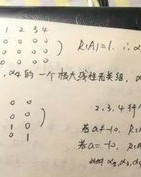 1 2 3 4
0 0 0 0
0 0 0 0
0 0 0 0
) R(A)=1. ∴ α
, α₄的一个极大线性无关组, α
0 0
0 0
1 0
0 1
)
2, 3, 4
若a≠-10, R(
若a=-10, R(
此时 α₂, α₃, α